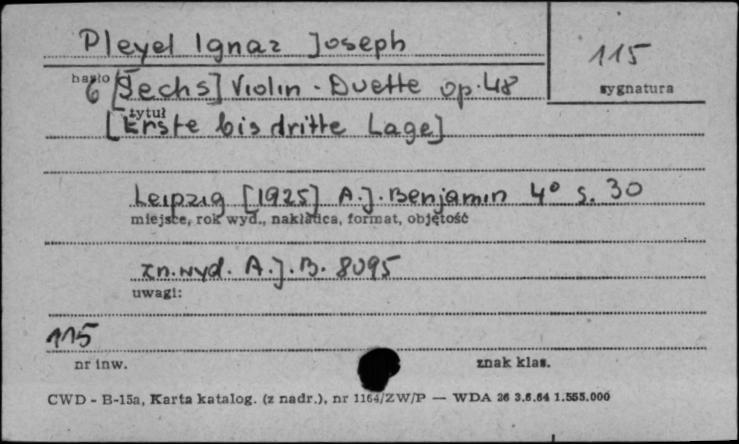 Pleyel Ignaz Joseph
115
hasło
sygnatura
6 [Sechs] Violin - Duette op. 48
tytuł
[Erste bis dritte Lage]
Leipzig [1925] A.J. Benjamin 4° s. 30
miejsce, rok wyd., nakładca, format, objętość
zn. wyd. A.J.B. 8095
uwagi:
115
nr inw.
znak klas.
CWD - B-15a, Karta katalog. (z nadr.), nr 1164/ZW/P — WDA 26 3.6.64 1.555.000